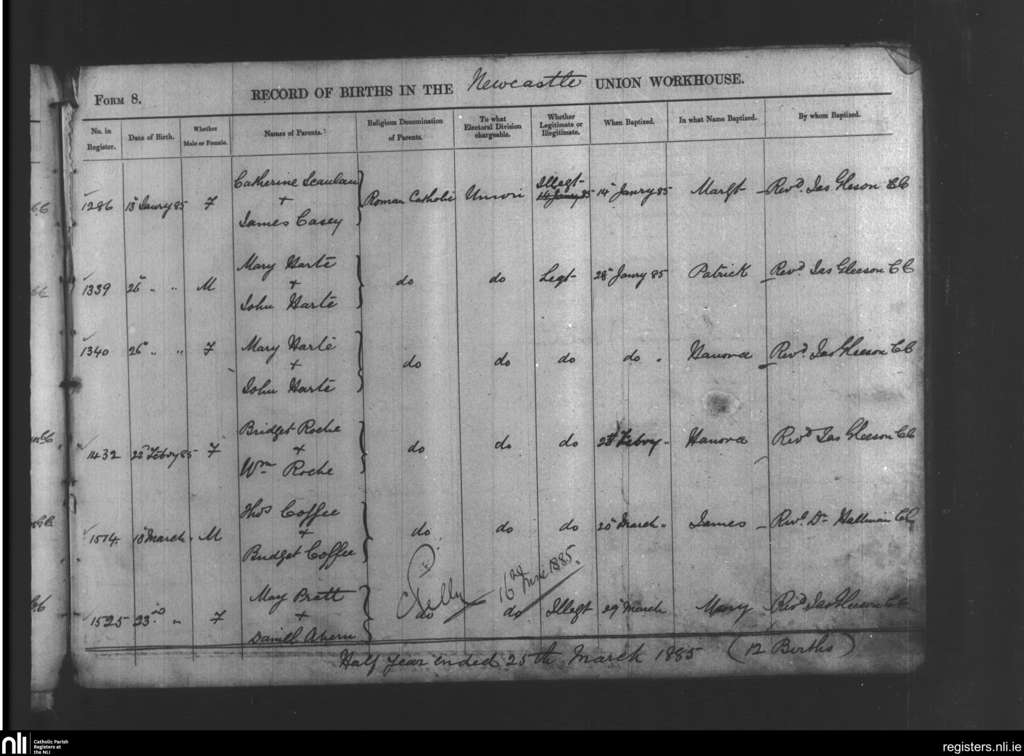 FORM 8.
RECORD OF BIRTHS IN THE Newcastle UNION WORKHOUSE.
No. in Register. Date of Birth. Whether Male or Female. Names of Parents. Religious Denomination of Parents. To what Electoral Division chargeable. Whether Legitimate or Illegitimate. When Baptized. In what Name Baptized. By whom Baptized.
Catherine Scanlan
1286 13th Janry 85 F + Roman Catholic Union Illegt 14th Janry 85 Margt Revd. Jas Gleeson CC
James Casey
Mary Harte
1339 26th " " M + do do Legt 28th Janry 85 Patrick Revd. Jas Gleeson CC
John Harte
Mary Harte
1340 26th " " F + do do do do Hanora Revd. Jas Gleeson CC
John Harte
Bridget Roche
1432 22nd Febry 85 F + do do do Febry Hanora Revd Jas Gleeson CC
Wm Roche
Thos Coffee
1514 March M + do do do March James Revd. Dr
Bridget Coffee
16th June 1885.
Mary Brett
1525 23rd " F + do do Illegt 29th March Mary Revd Jas Gleeson CC
Daniel Ahern
Half year ended 25th March 1885 (12 Births)
nli Catholic Parish
Registers at
the NLI
registers.nli.ie